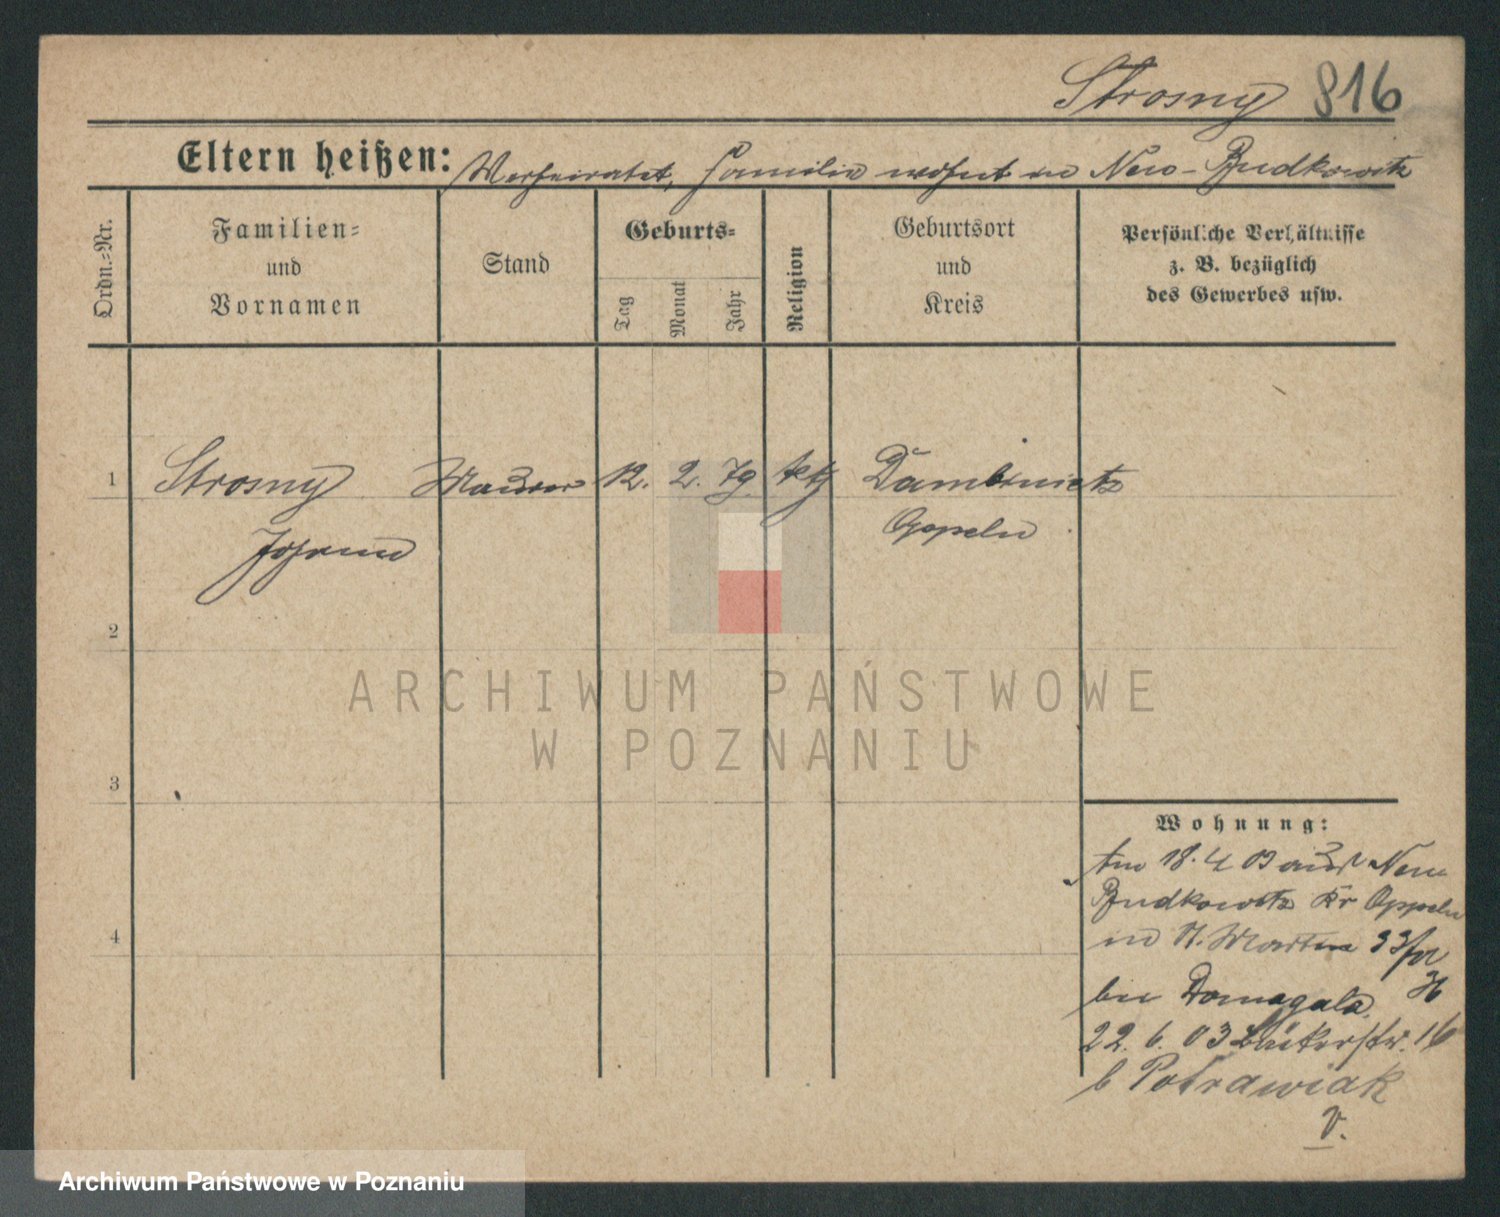 Strosny 816
Eltern heißen: Verheiratet, Familie wohnt in Neu-Budkowitz
Ordn.-Nr.
Familien-
und
Vornamen
Stand
Geburts-
Tag
Monat
Jahr
Religion
Geburtsort
und
Kreis
Persönliche Verhältnisse
z. B. bezüglich
des Gewerbes usw.
1 Strosny Maurer 12. 2. 79 kth Dambinietz
Johann Oppeln
2
3
4
Wohnung:
18. 4 03 aus Neu
Budkowitz Kr Oppeln
in St. Martin 33
bei Domagala
22. 6. 03 Bäckerstr. 16
b Potrawiak
V.
ARCHIWUM PAŃSTWOWE
W POZNANIU
Archiwum Państwowe w Poznaniu